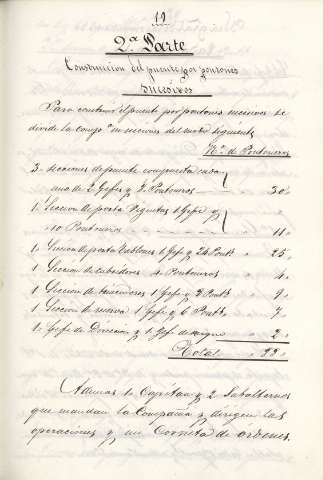 11
2.ª Parte
Construccion del puente por pontones
sucesivos
Para construir el puente por pontones sucesivos se
divide la comp.ª en secciones del modo siguiente
N.º de Pontoneros
3. secciones de puente compuesta cada
una de 2 Gefes y 8 Pontoneros " 30 "
1. Seccion de porta viguetas 1 Gefe y
10 Pontoneros " 11 "
1. Seccion de porta tablones 1 Gefe y 24 Pont.s " 25 "
1. Seccion de 4 Pontoneros " 4 "
1. Seccion de 1 Gefe y 8 Pont.s " 9 "
1. Seccion de 1 Gefe y 6 Pont.s " 7 "
1. Gefe de Direccion y 1 Gefe de " 2 "
Total
Ademas 1 Capitan y 2 Subalternos
que mandan la Compañia y dirigen las
operaciones y un Corneta de ordenes.